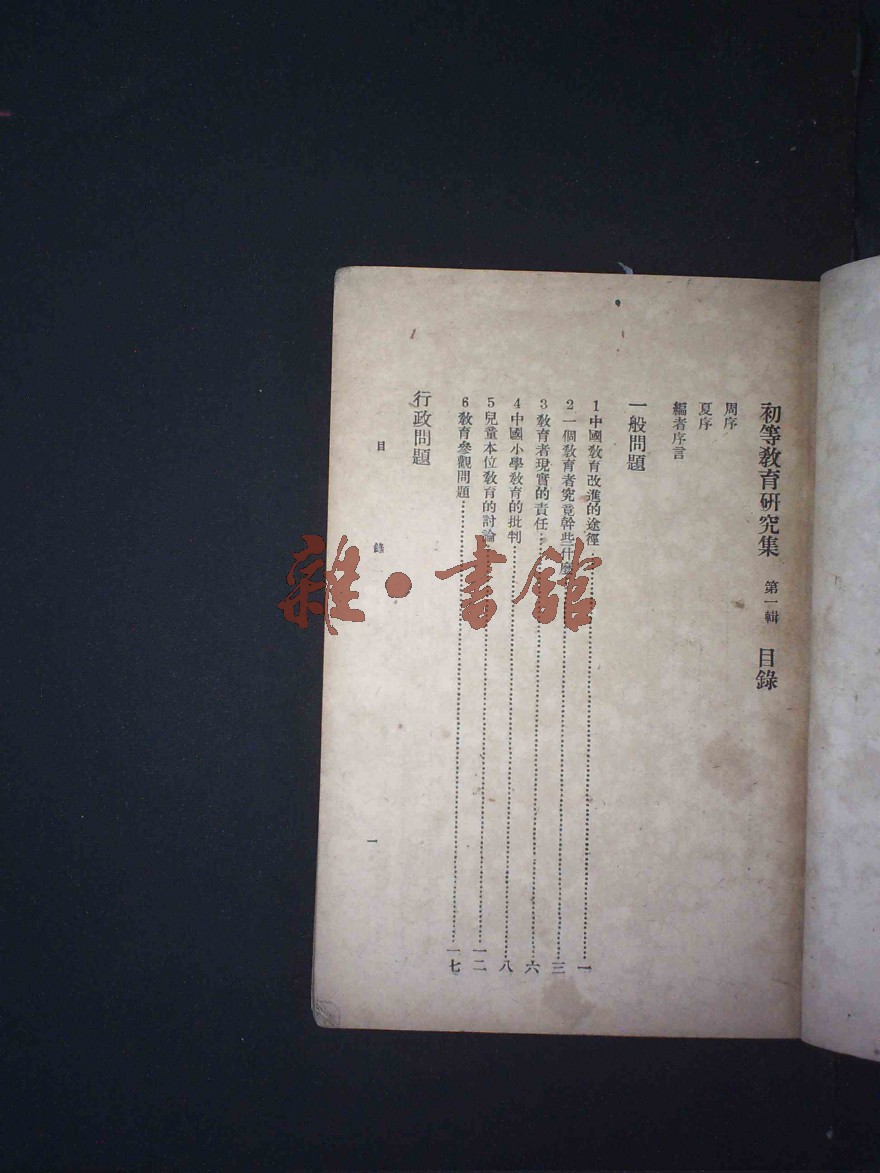 初等教育研究集 第一輯 目錄
周序
夏序
編者序言
一般問題
1 中國教育改進的途徑……一
2 一個教育者究竟幹些什麼……三
3 教育者現實的責任……六
4 中國小學教育的批判……八
5 兒童本位教育的討論……一二
6 教育參觀問題……一七
行政問題
目 錄 一
雜·書館